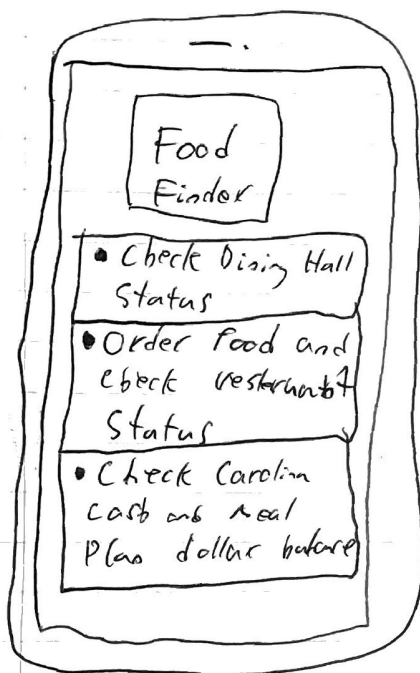 Food
Finder
• Check Dining Hall
Status
• Order food and
check resteraunt
Status
• Check Carolina
cash and meal
Plan dollar balance